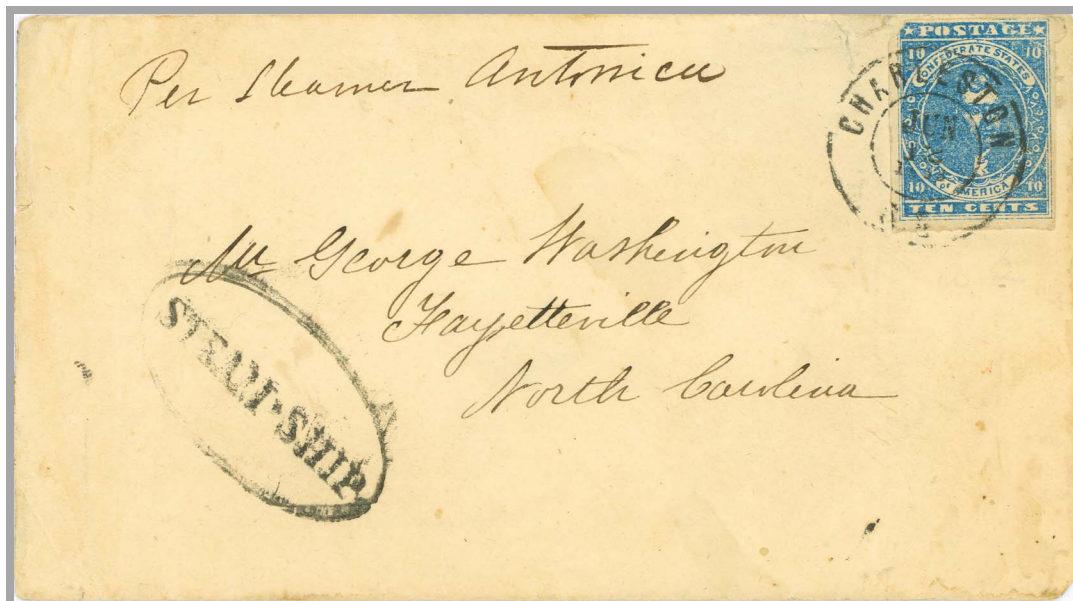 Per Steamer Antonica
★POSTAGE★
10 10
CONFEDERATE STATES
OF AMERICA
10 10
TEN CENTS
CHARLESTON
JUN
Mr George Washington
Fayetteville
North Carolina
STEAM·SHIP